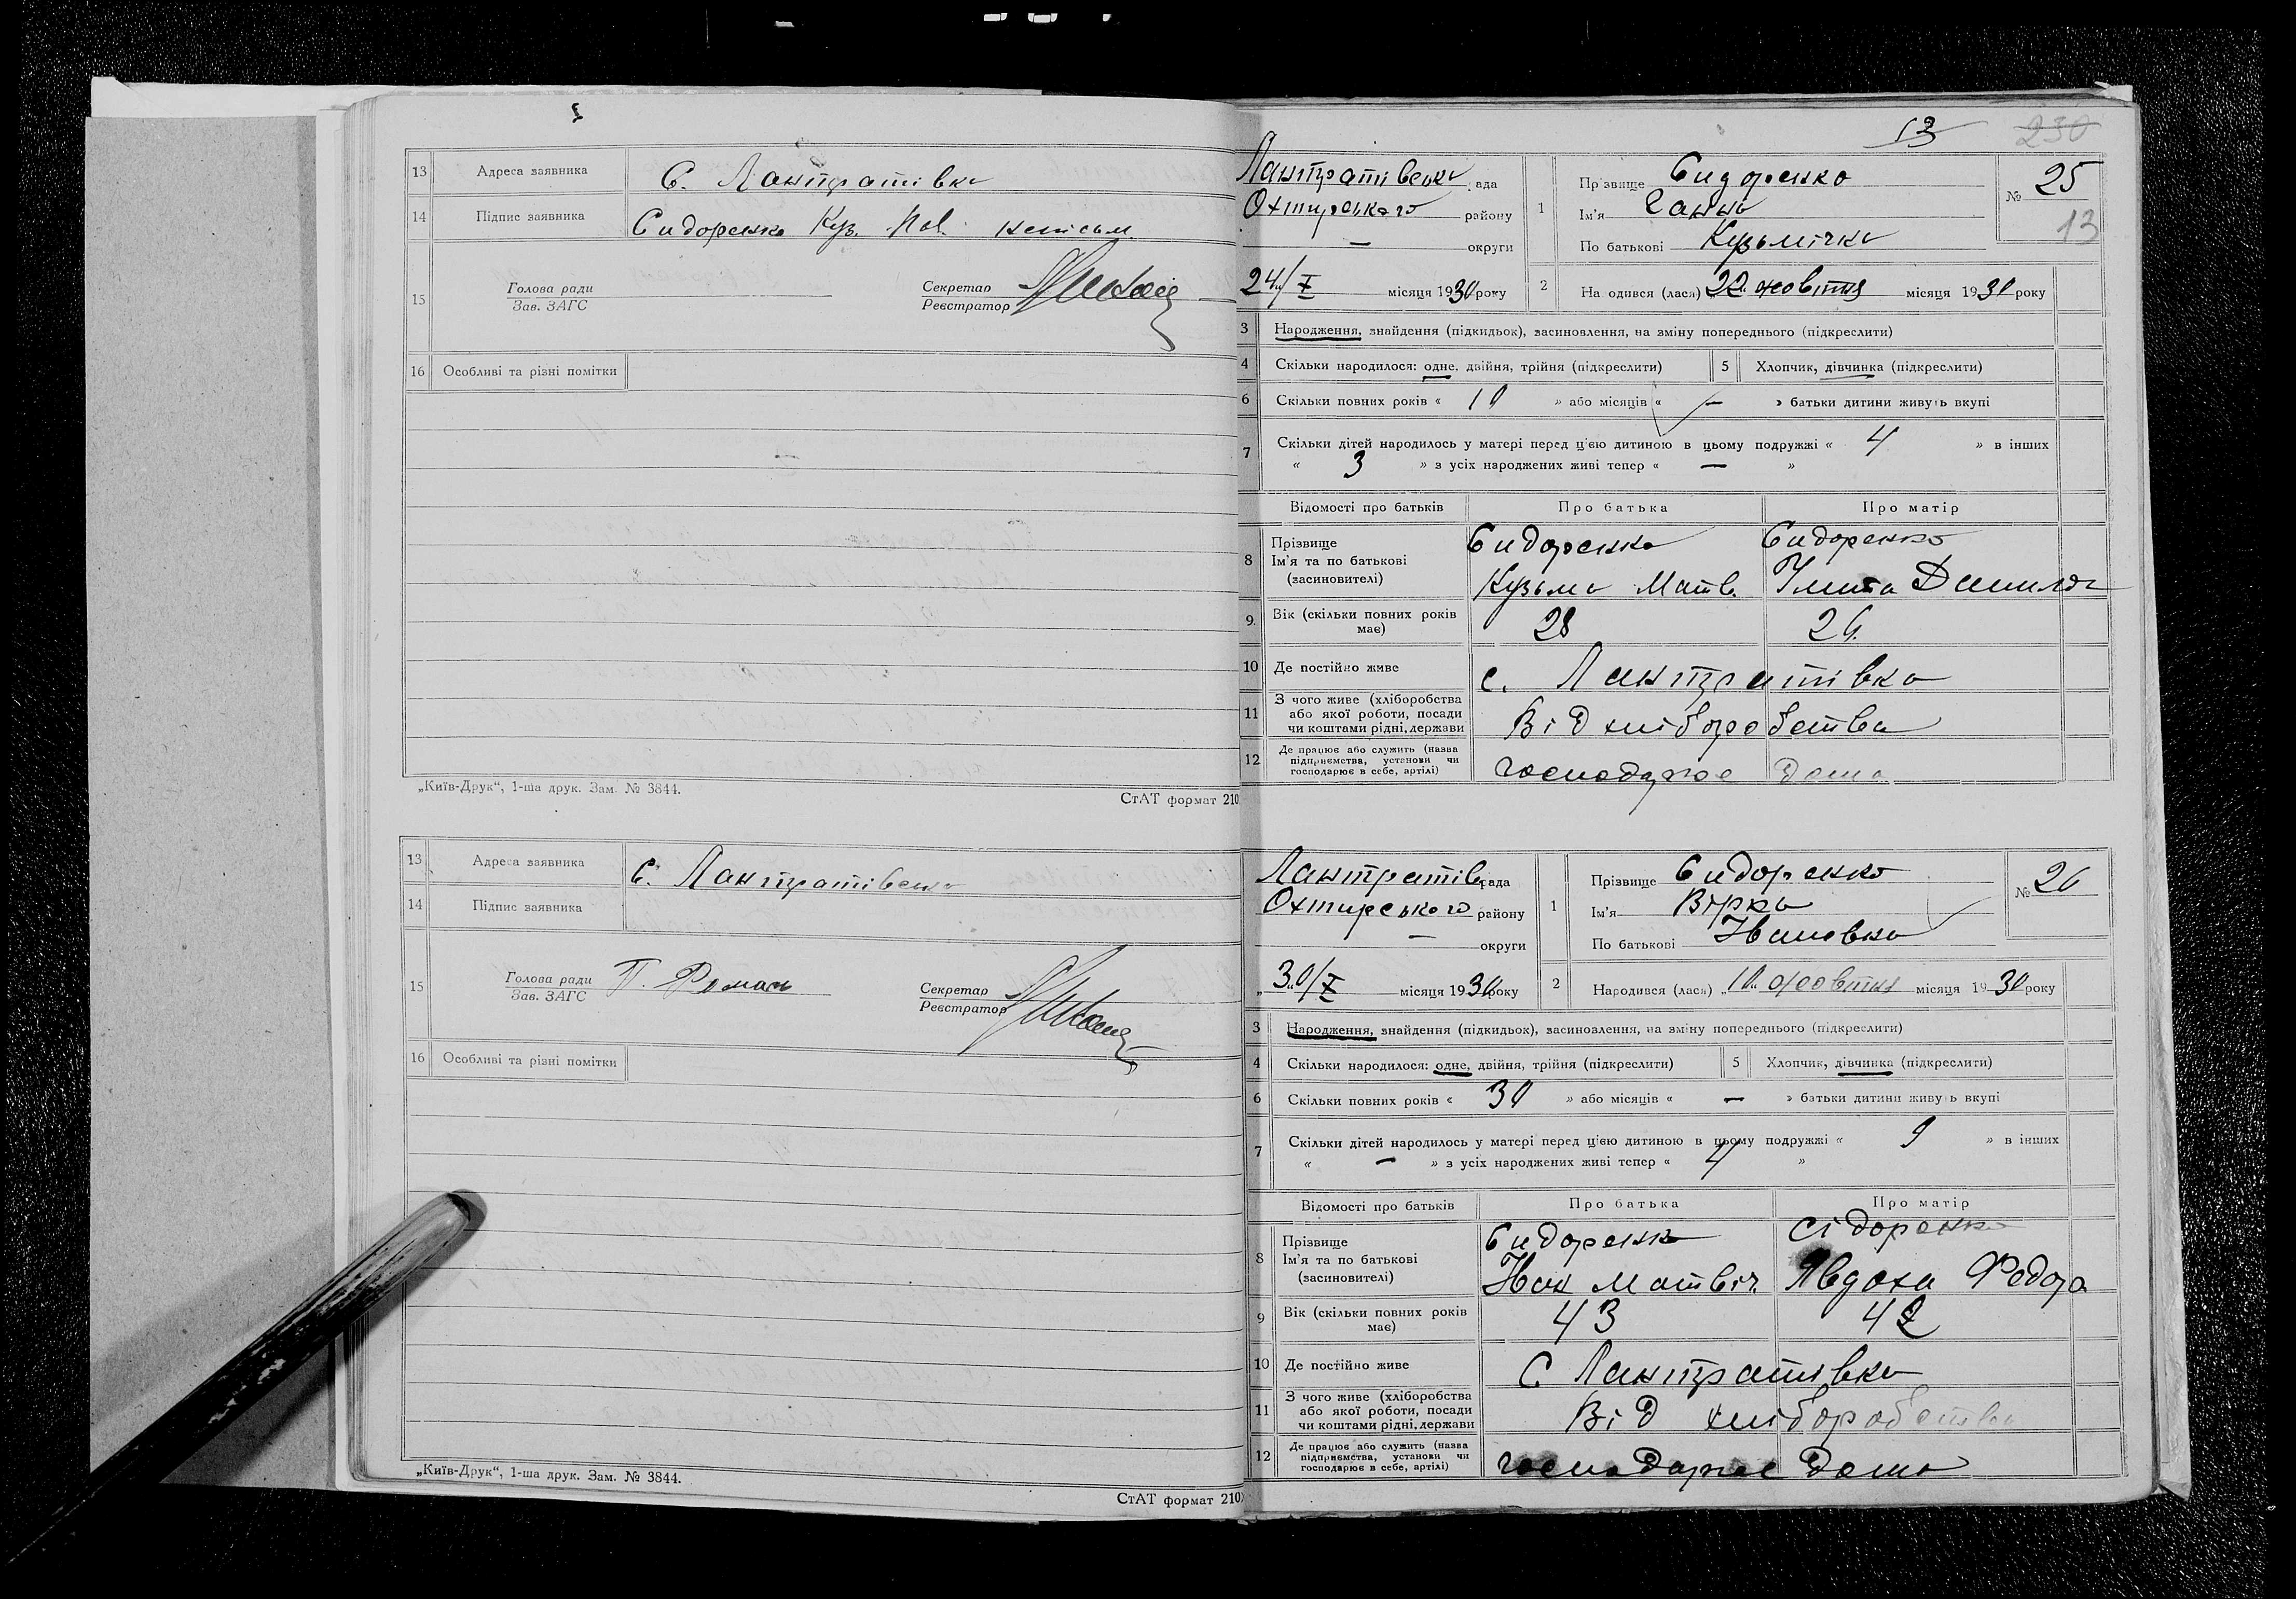 13 Адреса заявника С. Лантратівка
14 Підпис заявника Сидоренко Куз. неписьм.
15 Голова ради
Зав. ЗАГС
Секретар
Реєстратор
16 Особливі та різні помітки
„Київ-Друк“, 1-ша друк. Зам. № 3844.
СтАТ формат 210
13 Адреса заявника С. Лантратівська
14 Підпис заявника
15 Голова ради П. Роман
Зав. ЗАГС
Секретар
Реєстратор
16 Особливі та різні помітки
„Київ-Друк“, 1-ша друк. Зам. № 3844.
СтАТ формат 210
13 230
Лантратівська рада
Охтирського району
— округи
24/X місяця 1930 року
1 Прізвище Сидоренко
Ім'я Ганна
По батькові Кузьмічна
№ 25
13
2 Народився (лася) 22 жовтня місяця 1930 року
3 Народження, знайдення (підкидьок), засиновлення, на зміну попереднього (підкреслити)
4 Скільки народилося: одне, двійня, трійня (підкреслити) 5 Хлопчик, дівчинка (підкреслити)
6 Скільки повних років « 10 » або місяців « — » батьки дитини живуть вкупі
7 Скільки дітей народилось у матері перед цією дитиною в цьому подружжі « 4 » в інших
« 3 » з усіх народжених живі тепер « — »
Відомості про батьків Про батька Про матір
8 Прізвище Сидоренко Сидоренко
Ім'я та по батькові
(засиновителі) Кузьма Матв.
9. Вік (скільки повних років
має) 28 26.
10 Де постійно живе с. Лантратівка
11 З чого живе (хліборобства
або якої роботи, посади
чи коштами рідні, держави Від хліборобства
12 Де працює або служить (назва
підприємства, установи чи
господарює в себе, артілі) господарює дома
Лантратів рада
Охтирського району
— округи
„30/X місяця 1930 року
1 Прізвище Сидоренко
Ім'я Вірка
По батькові Івановна
№ 26
2 Народився (лася) „10 жовтня місяця 1930 року
3 Народження, знайдення (підкидьок), засиновлення, на зміну попереднього (підкреслити)
4 Скільки народилося: одне, двійня, трійня (підкреслити) 5 Хлопчик, дівчинка (підкреслити)
6 Скільки повних років « 30 » або місяців « — » батьки дитини живуть вкупі
7 Скільки дітей народилось у матері перед цією дитиною в цьому подружжі « 9 » в інших
« — » з усіх народжених живі тепер « 4 »
Відомості про батьків Про батька Про матір
8 Прізвище Сидоренко Сідоренко
Ім'я та по батькові
(засиновителі) Іван Матвіч. Явдоха Федора
9 Вік (скільки повних років
має) 43 42
10 Де постійно живе С Лантратівка
11 З чого живе (хліборобства
або якої роботи, посади
чи коштами рідні, держави Від хліборобства
12 Де працює або служить (назва
підприємства, установи чи
господарює в себе, артілі) господарює дома